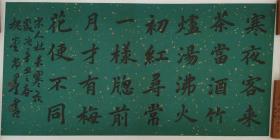 寒夜客來
茶當酒竹
爐湯沸火
初紅尋常
一樣窗前
月才有梅
花便不同
宋人杜耒寒夜